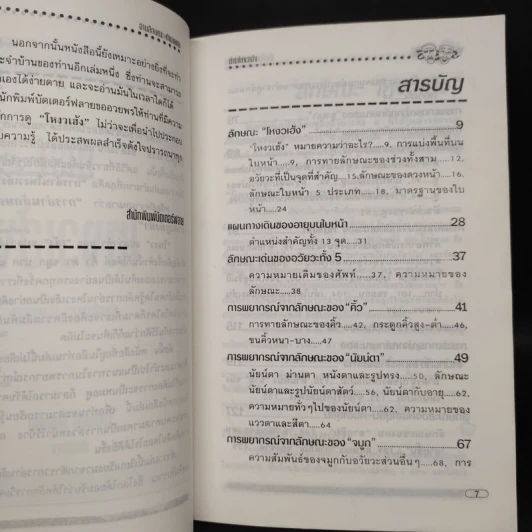 นอกจากนั้นหนังสือนี้ยังเหมาะอย่างยิ่งที่จะทำ
ะจำบ้านของท่านอีกเล่มหนึ่ง ซึ่งท่านจะสามารถ
เองได้ง่ายดาย และจะอ่านมันในเวลาใดก็ได้
นักพิมพ์บัตเตอร์ฟลายขออวยพรให้ท่านที่มีความ
การดู "โหงวเฮ้ง" ไม่ว่าจะเพื่อนำไปประกอบ
ความรู้ ได้ประสพผลสำเร็จดังใจปรารถนาทุก
สำนักพิมพ์บัตเตอร์ฟลาย
สารบัญ
ลักษณะ "โหงวเฮ้ง" 9
"โหงวเฮ้ง" หมายความว่าอะไร?.....9, การแบ่งพื้นที่บน
ใบหน้า.....9, การทายลักษณะของช่วงทั้งสาม.....12,
อวัยวะที่เป็นจุดที่สำคัญ...15,ลักษณะของดวงหน้า...16,
ลักษณะใบหน้า 5 ประเภท....18, มาตรฐานของใบ
หน้า....24
แผนทางเดินของอายุบนใบหน้า 28
ตำแหน่งสำคัญทั้ง 13 จุด....31
ลักษณะเด่นของอวัยวะทั้ง 5 37
ความหมายเดิมของศัพท์....37, ความหมายของ
ลักษณะ....38
การพยากรณ์จากลักษณะของ "คิ้ว" 41
การทายลักษณะของคิ้ว....42, กระดูกคิ้วสูง-ต่ำ....46,
ขนคิ้วหนา-บาง....47
การพยากรณ์จากลักษณะของ "นัยน์ตา" 49
นัยน์ตา ม่านตา หนังตาและรูปทรง....50, ลักษณะ
นัยน์ตาและรูปนัยน์ตาสัตว์....56, นัยน์ตากับอายุ....62,
ความหมายทั่วๆไปของนัยน์ตา....62, ความหมายของ
แววตาและสีตา....64
การพยากรณ์จากลักษณะของ "จมูก" 67
ความสัมพันธ์ของจมูกกับอวัยวะส่วนอื่นๆ....68, การ
7